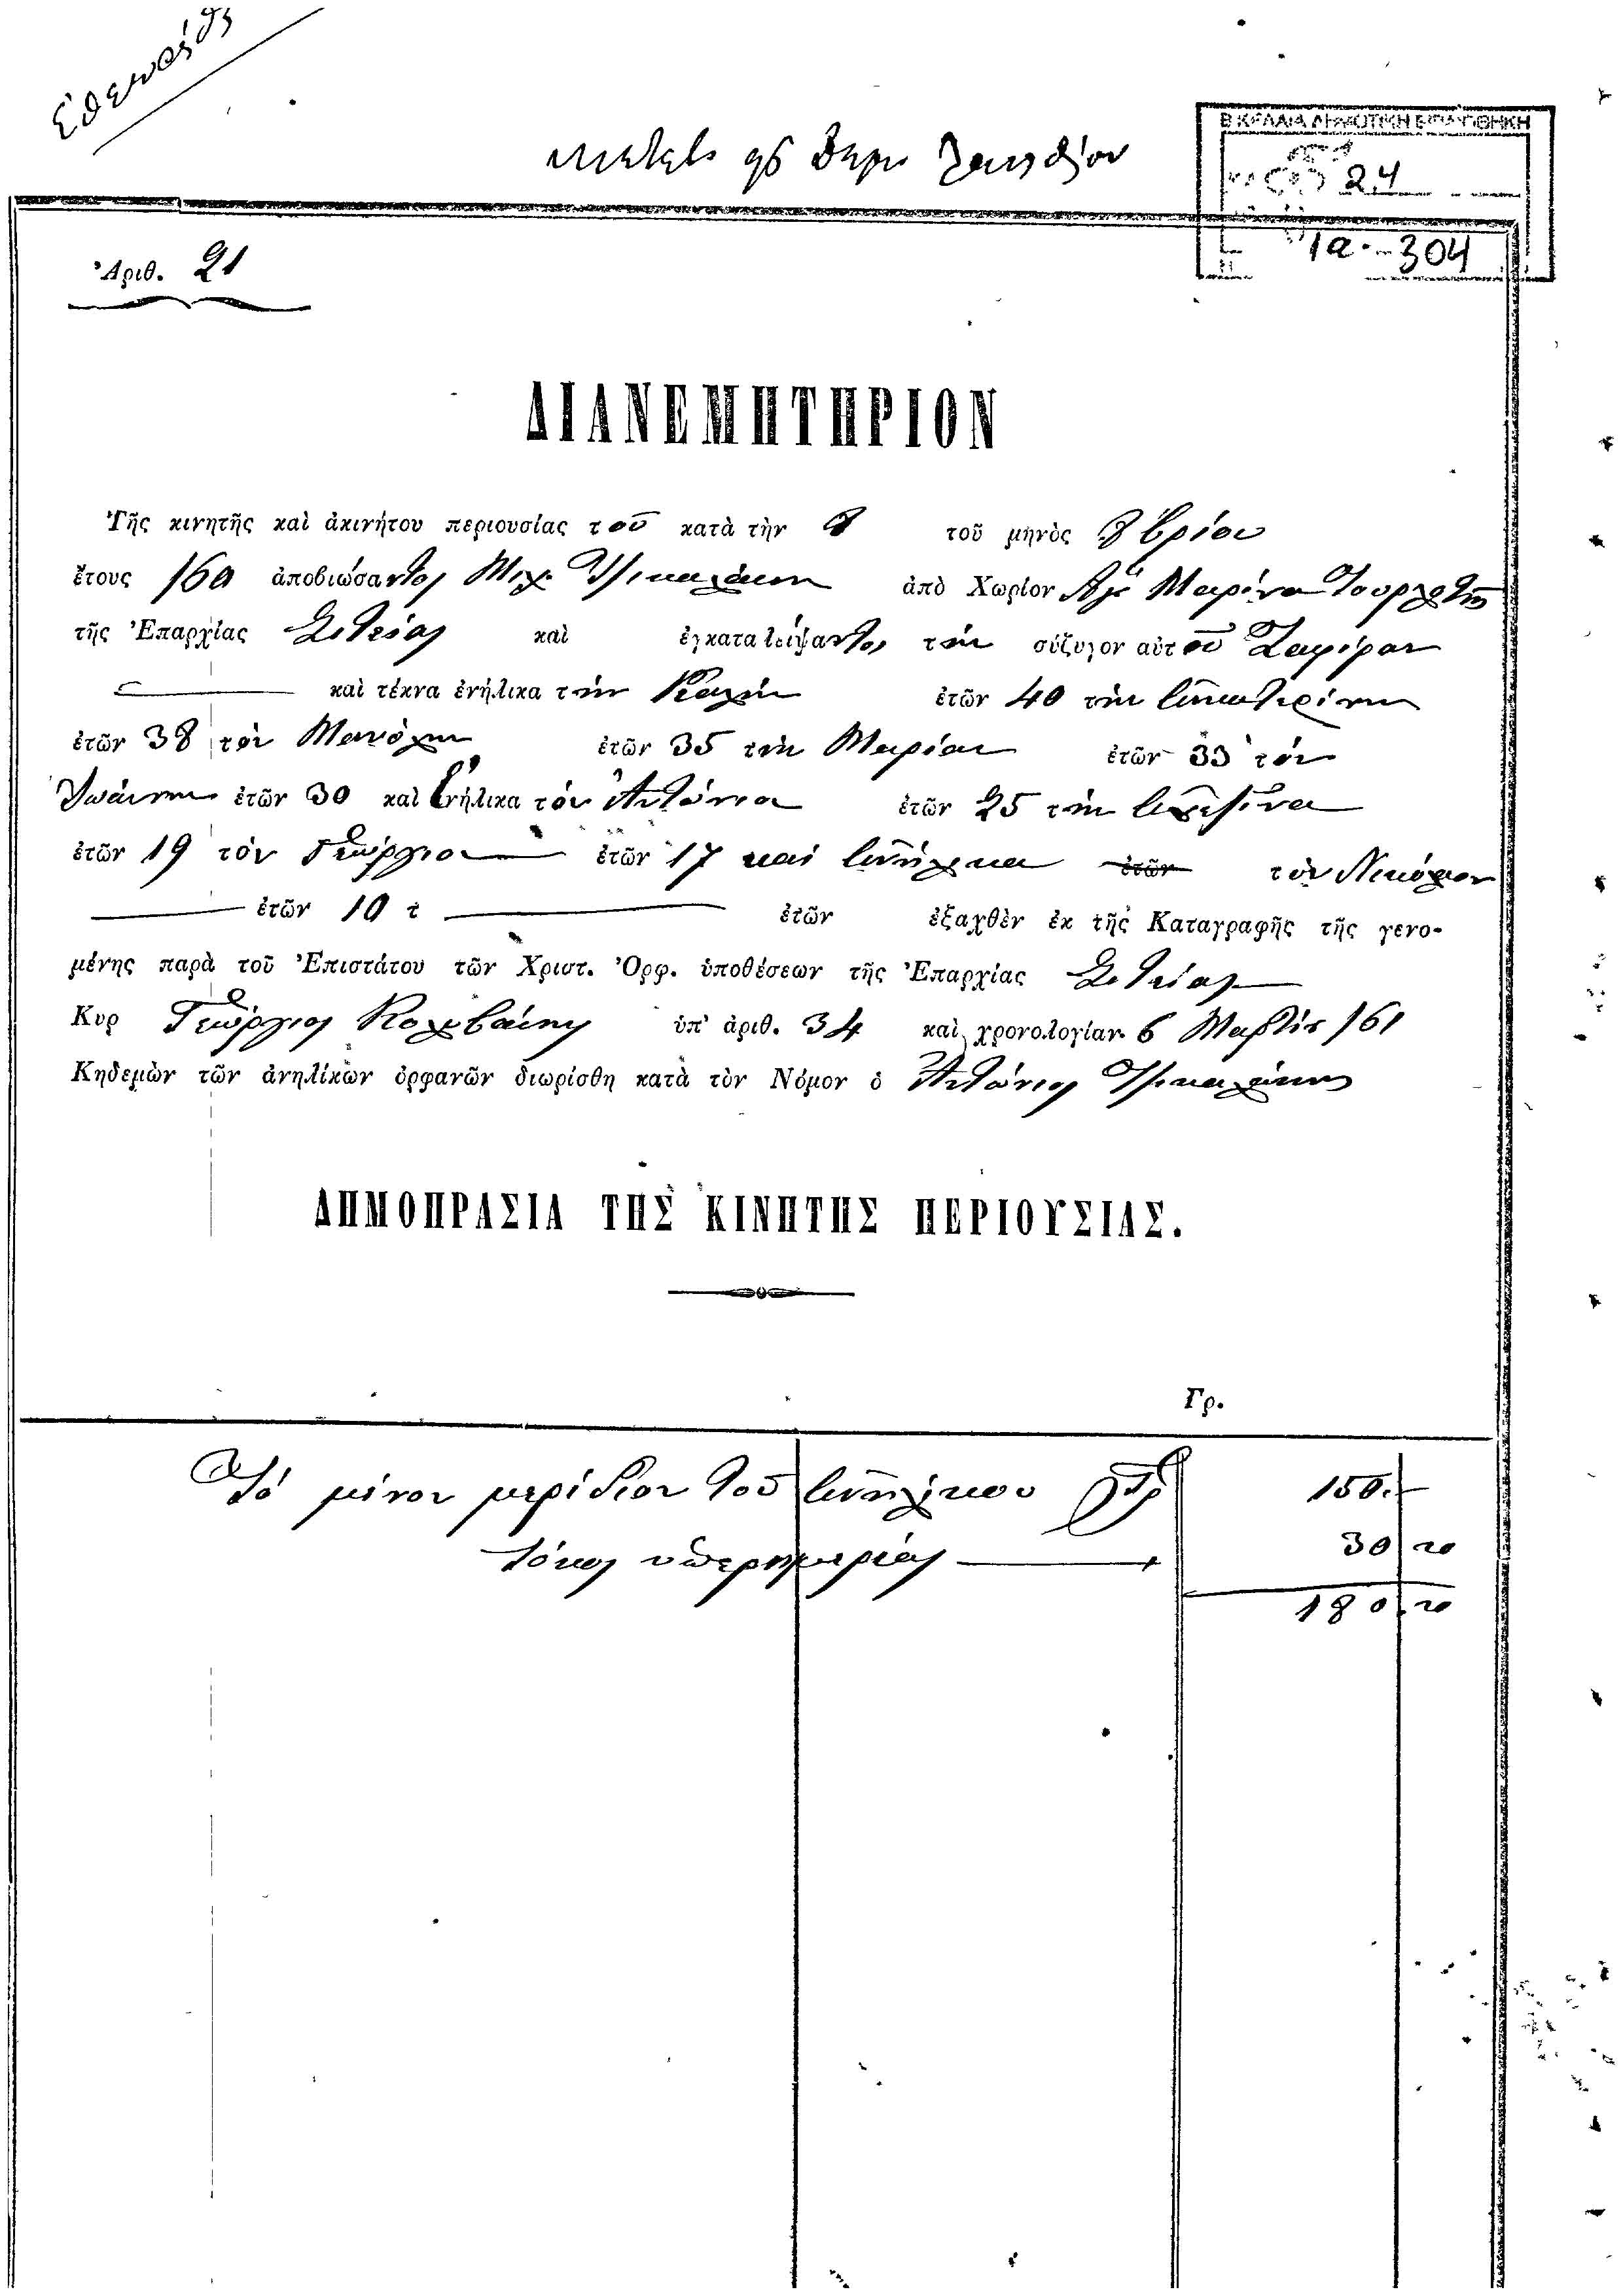 ΒΙΚΕΛΑΙΑ ΔΗΜΟΤΙΚΗ ΒΙΒΛΙΟΘΗΚΗ
24
1α.-304
Ἀριθ. 21
ΔΙΑΝΕΜΗΤΗΡΙΟΝ
Τῆς κινητῆς καὶ ἀκινήτου περιουσίας τοῦ κατὰ τὴν τοῦ μηνὸς 7βρίου
ἔτους 160 ἀποβιώσαντος Μιχ. Τσικαλάκη ἀπὸ Χωρίον Ἁγ. Μαρίνα
τῆς Ἐπαρχίας Σιτείας καὶ ἐγκαταλείψαντος τὴν σύζυγον αὐτοῦ Ζαφίραν
καὶ τέκνα ἐνήλικα τὴν Καλὴν ἐτῶν 40 τὴν Αἰκατερίνην
ἐτῶν 38 τὸν Μανόλην ἐτῶν 35 τὴν Μαρίαν ἐτῶν 33 τόν
Ἰωάννην ἐτῶν 30 καὶ ἐνήλικα τὸν Ἀντώνιον ἐτῶν 25 τὴν
ἐτῶν 19 τὸν Γεώργιον ἐτῶν 17 καὶ ἀνήλικα ἐτῶν τὸν Νικόλαον
ἐτῶν 10 τ ἐτῶν ἐξαχθὲν ἐκ τῆς Καταγραφῆς τῆς γενο-
μένης παρὰ τοῦ Ἐπιστάτου τῶν Χριστ. Ὀρφ. ὑποθέσεων τῆς Ἐπαρχίας Σιτείας
Κυρ Γεώργιος ὑπ' ἀριθ. 34 καὶ χρονολογίαν 6 Μαρτίου 161
Κηδεμὼν τῶν ἀνηλίκων ὀρφανῶν διωρίσθη κατὰ τὸν Νόμον ὁ Ἀντώνιος Τσικαλάκης
ΔΗΜΟΠΡΑΣΙΑ ΤΗΣ ΚΙΝΗΤΗΣ ΠΕΡΙΟΥΣΙΑΣ.
Γρ.
Τό μόνον μερίδιον τοῦ ἀνηλίκου 150.-
τόκος ὑπερημερίας 30 20
180.20